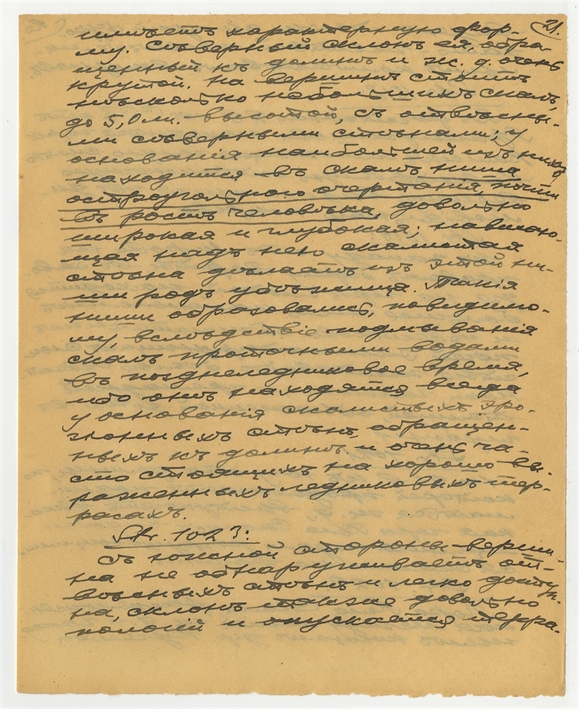 21.
имѣетъ характерную фор-
му. Сѣверный склонъ ея, обра-
щенный къ долинѣ и ж. д. очень
крутой. на вершинѣ стоитъ
нѣсколько небольшихъ скалъ,
до 5,0 м. высотой, съ отвѣсны-
ми сѣверными стѣнами; у
основанія наибольшей изъ нихъ
находится въ скалѣ ниша
остроугольного очертанія, почти
въ ростъ человѣка, довольно
широкая и глубокая; нависаю-
щая надъ нею скалистая
стѣна дѣлаетъ изъ этой ни-
ши родъ убѣжища. Такія
ниши образовались, повидимо-
му, вслѣдствіе подмыванія
скалъ проточными водами
въ позднеледниковое время,
ибо онѣ находятся всегда
у основанія скалистыхъ эро-
зіонныхъ стѣнъ, обращен-
ныхъ къ долинѣ и очень ча-
сто стоящихъ на хорошо вы-
раженныхъ ледниковыхъ тер-
расахъ.
Str. 102 3:
съ южной стороны верши-
на не обнаруживаетъ от-
вѣсныхъ стѣнъ и легко доступ-
на, склонъ также довольно
пологій и опускается терра-